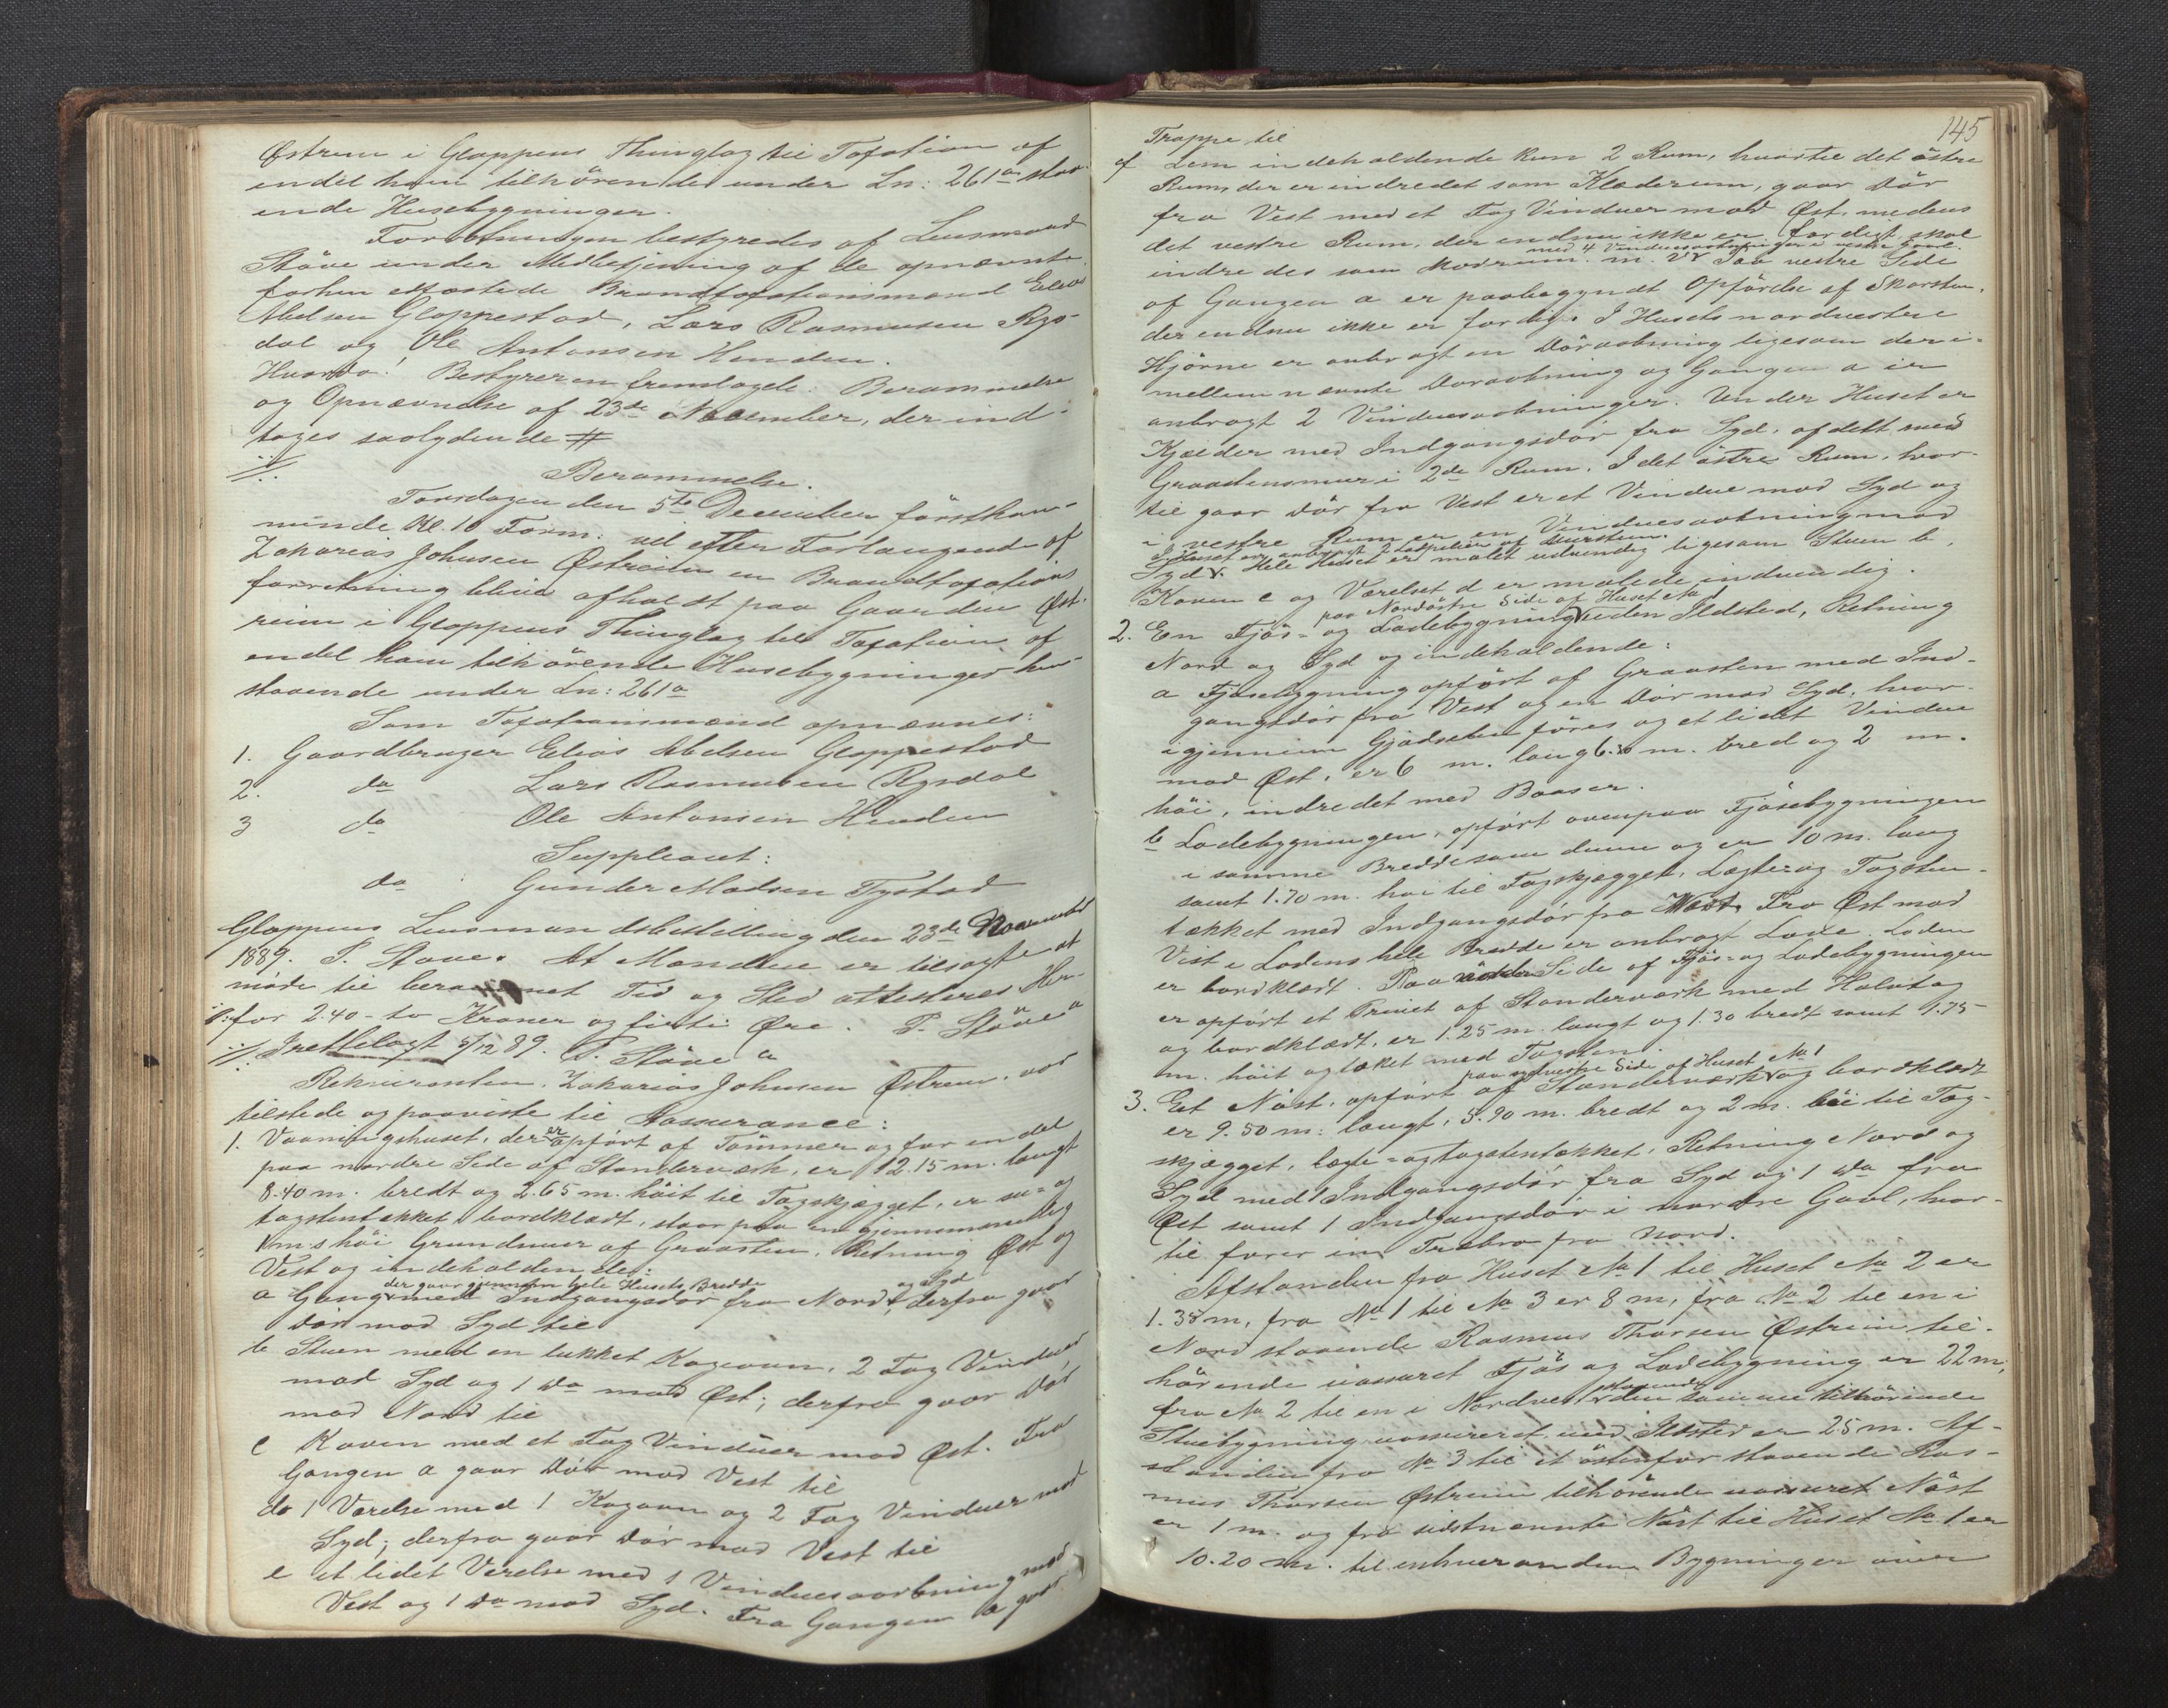 Østrem i Gloppens Thinglag til Taxation af
endel ham tilhörende under Ln: 261a staa-
ende Husebygninger.
Forretningen bestyredes af Lensmand
Stöve under Medbetjening af de opnævnte
forhen edfæstede Brandtaxationsmænd Elias
Abelsen Gloppestad, Lars Rasmusen Rys-
dal og Ole Antonsen Henden.
Hvorda! Bestyreren fremlagde: Berammelse
og Opnævnelse af 23de November, der ind-
tages saalydende #
Berammelse.
Torsdagen den 5te December förstkom-
mende Kl. 10 Form. vil efter Forlangende af
Zakarias Johnsen Østreim en Brandtaxations
forretning blive afholdt paa Gaarden Øst-
reim i Gloppens Thinglag til Taxation af
endel ham tilhörende Husebygninger hen-
staaende under Ln: 261a
Som Taxationsmænd opnævnes:
1. Gaardbruger Elias Abelsen Gloppestad
2. do Lars Rasmusen Rysdal
3 do Ole Antonsen Henden
Suppleant:
do Gunder Madsen Tystad
Gloppens Lensmandsbestilling den 23de November
1889. P. Stöve. At Mændene er tilsagte at
möde til berammet Tid og Sted attesteres Her-
for 2.40 - to Kroner og firti Øre. P. Stöve
Irettelagt 5/12 89. P. Stöve
Rekvirenten, Zakarias Johnsen Østrem, var
tilstede og paaviste til Assurance:
1. Vaaningshuset, der er opfört af Tömmer og for en del
paa nordre Side af Standerværk, er 12.15 m. langt
8.40 m. bredt og 2.65 m. höit til Tagskjægget, er su- og
tagstentækket, bordklædt, staar paa en gjennemsnitlig
1 m's höi Grundmur af Graasten, Retning Øst og
Vest og indeholdende:
der gaar gjennem hele Husets Bredde
og Syd
a Gang med Indgangsdör fra Nord, derfra gaar
Dör mod Syd til
b Stuen med en lukket Kogeovn, 2 Fag Vinduer
mod Syd og 1 do mod Øst; derfra gaar Dör
mod Nord til
c Koven med et Fag Vinduer mod Øst. Fra
Gangen a gaar Dör mod Vest til
d 1 Værelse med 1 Kogovn og 2 Fag Vinduer mod
Syd; derfra gaar Dör mod Vest til
e et lidet Værelse med 1 Vinduesaabning mod
Vest og 1 do mod Syd. Fra Gangen a gaar
145
Trappe til
f Lem indeholdende kun 2 Rum, hvortil det östre
Rum, der er indredet som Klæderum, gaar Dör
fra Vest med et Fag Vinduer mod Øst, medens
det vestre Rum, der endnu ikke er færdigt, skal
med 4 Vinduesaabninger i vestre Gavl.
indredes som Madrum. m. v. Paa vestre Side
af Gangen a er paabegyndt Opförelse af Skorsten,
der endnu ikke er færdig. I Husets nordvestre
Hjörne er anbragt en Döraabning ligesom der i-
mellem nævnte Döraabning og Gangen a er
anbragt 2 Vinduesaabninger. Under Huset er
Kjælder med Indgangsdör fra Syd, afdelt med
Graastensmur i 2de Rum. I det östre Rum, hvor-
til gaar Dör fra Vest er et Vindue mod Syd og
i vestre Rum er en Vinduesaabning mod
I Huset er anbragt 2 af Mursten.
Syd. Hele Huset er malet udvendig ligesom Stuen b,
Koven c og Værelset d er malede indvendig.
paa Nordöstre Side af Huset No 1
2. En Fjös- og Ladebygning uden Ildsted, Retning
Nord og Syd og indeholdende:
a Fjösebygning opfört af Graasten med Ind-
gangsdör fra Vest og en Dör mod Syd, hvor-
igjennem Gjödselen föres og et lidet Vindue
mod Øst, er 6 m. lang 6.30 m. bred og 2 m.
höi, indredet med Baaser.
b Ladebygningen, opfört ovenpaa Fjösebygningen
i samme Bredde som denne og er 10 m. lang
samt 1.70 m. höi til Tagskjægget, Lægter og Tagsten-
tækket med Indgangsdör fra Vest. Fra Øst mod
Vest i Ladens hele Bredde er anbragt Laave. Laden
er bordklædt. Paa Side af Fjös- og Ladebygningen
er opfört et Privet af Standerværk med Halvtag
og bordklædt, er 1.25 m. langt og 1.30 bredt samt 1.75
m. höit og tækket med Tagsten.
paa sydvestre Side af Huset No 1
3. Et Nöst, opfört af Standerværk og bordklædt
er 9.50 m. langt, 5.90 m. bredt og 2 m. höi til Tag-
skjægget, lægte- og tagstentækket, Retning Nord og
Syd med 1 Indgangsdör fra Syd og 1 do fra
Øst samt 1 Indgangsdör i nordre Gavl, hvor-
til förer en Træbro fra Nord.
Afstanden fra Huset No 1 til Huset No 2 er
1.38 m, fra No 1 til No 3 er 8 m, fra No 2 til en i
Nord staaende Rasmus Thorsen Østreim til-
hörende uassuret Fjös og Ladebygning er 22 m,
fra No 2 til en i Nordvest staaende den samme tilhörende
Stuebygning uassureret med Ildsted er 25 m. Af-
standen fra No 3 til et östenfor staaende Ras-
mus Thorsen Østreim tilhörende uassuret Nöst
er 1 m. og fra sidstnævnte Nöst til Huset No 1 er
10.20 m. til enhver anden Bygninger over